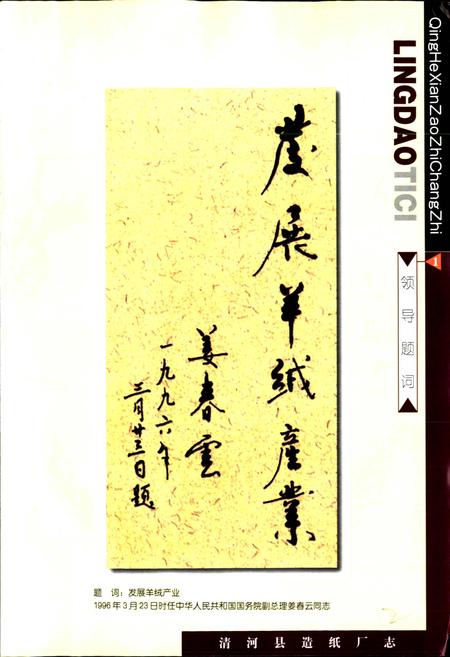 QingHeXianZaoZhiChangZhi
LINGDAOTICI
1
领导题词
發展羊绒產業
姜春雲
一九九六年
三月廿三日題
题 词：发展羊绒产业
1996年3月23日时任中华人民共和国国务院副总理姜春云同志
清河县造纸厂志